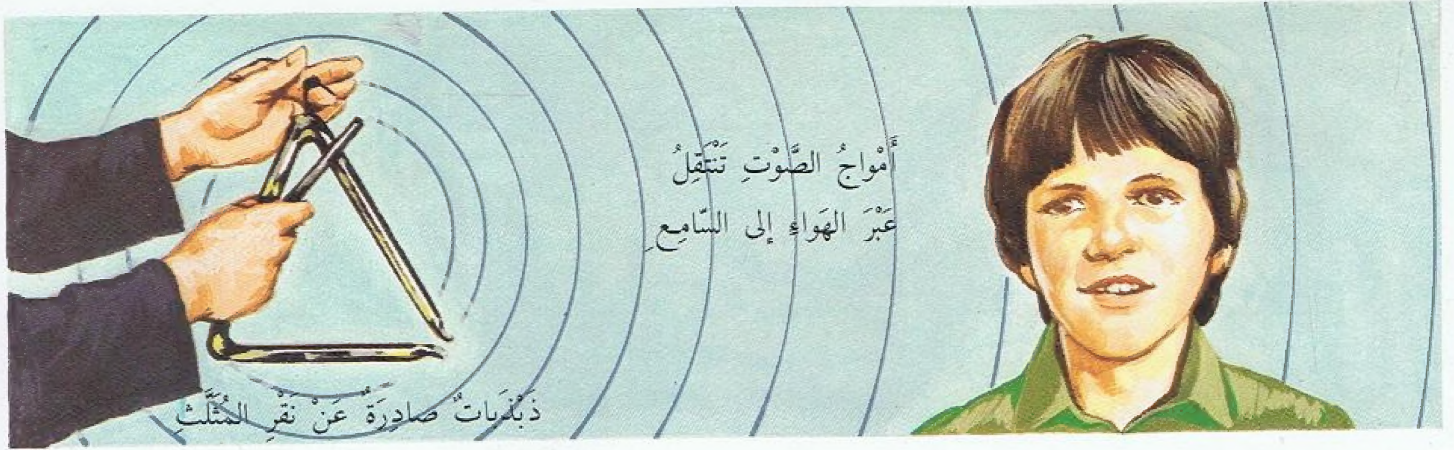 أَمْواجُ الصَّوْتِ تَنْتَقِلُ
عَبْرَ الهَواءِ إلى السّامِعِ
ذَبْذَباتٌ صادِرَةٌ عَنْ نَقْرِ المُثَلَّثِ